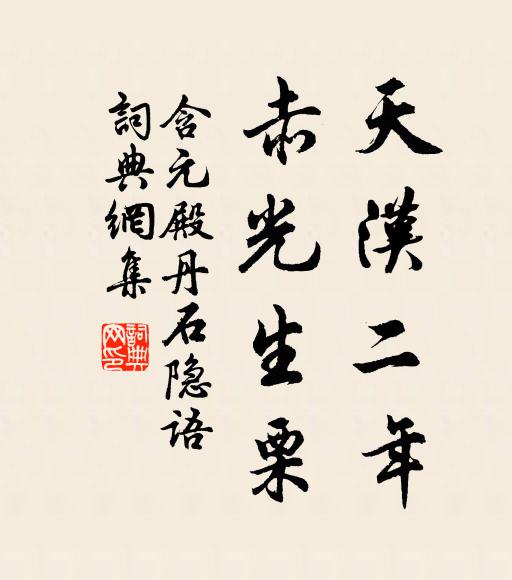 天漢二年
赤光生栗
含元殿丹石隐語
詞典網集
詞典网印